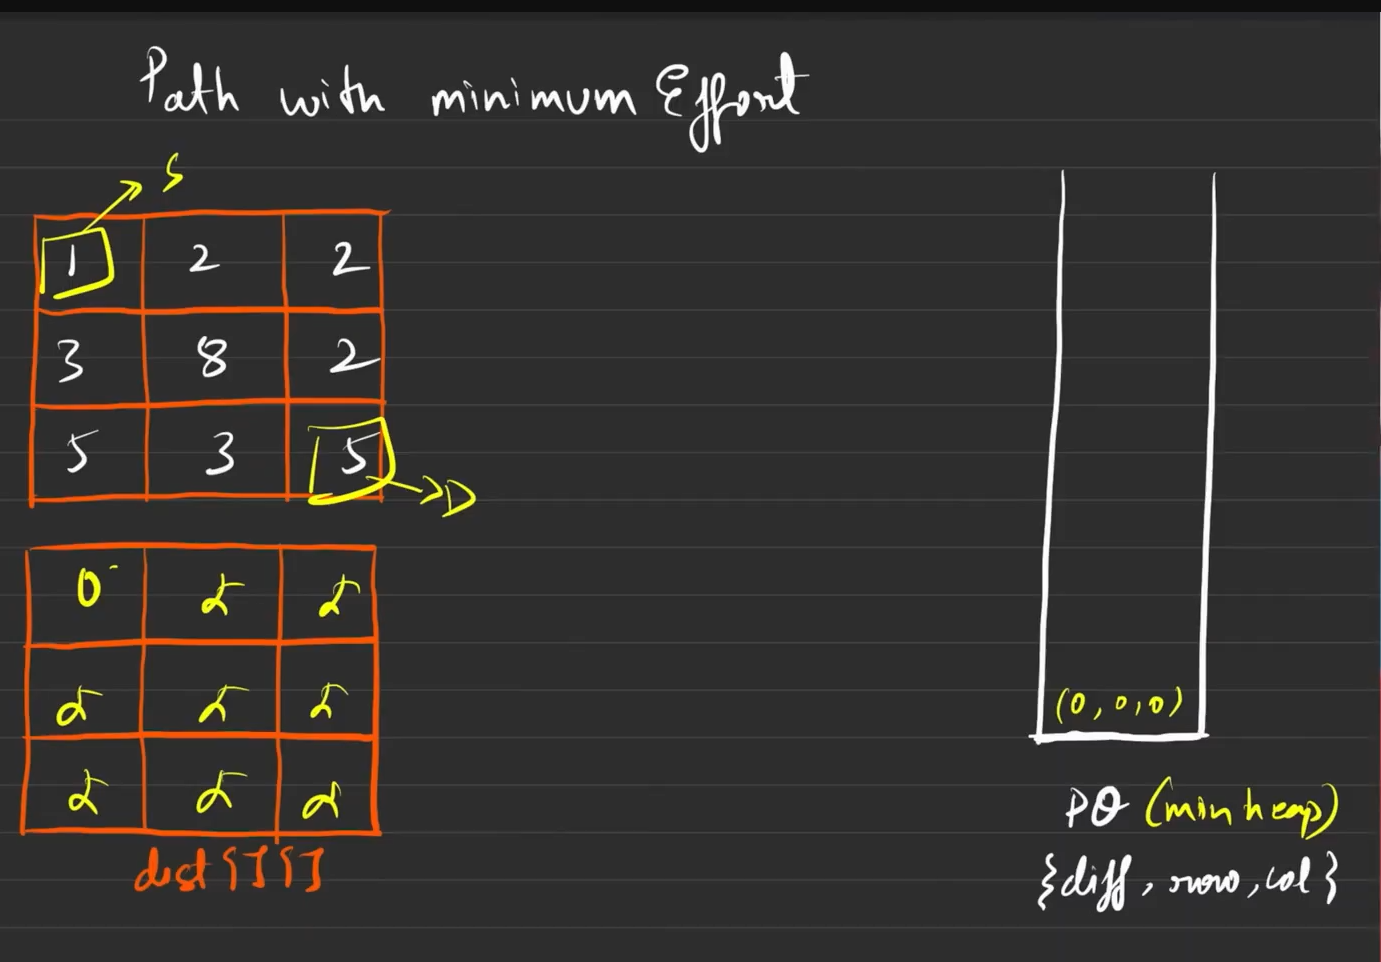 Path with minimum Effort
S
1 2 2
3 8 2
5 3 5
D
0 α α
α α α
α α α
dist[][]
(0,0,0)
PQ (min heap)
{diff, row, col}